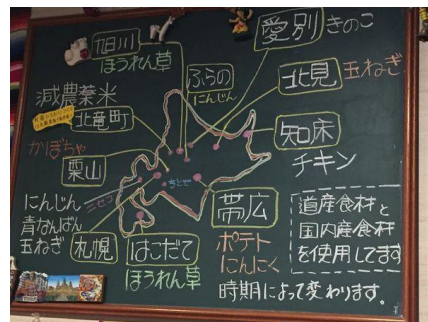 旭川
ほうれん草
愛別 きのこ
ふらの
にんじん
北見 玉ねぎ
減農薬米
北竜町
知床
チキン
かぼちゃ
栗山
ニセコ
ちとせ
にんじん
青なんばん
玉ねぎ
札幌
はこだて
ほうれん草
帯広
ポテト
にんにく
道産食材と
国内産食材
を使用してます
時期によって変わります。